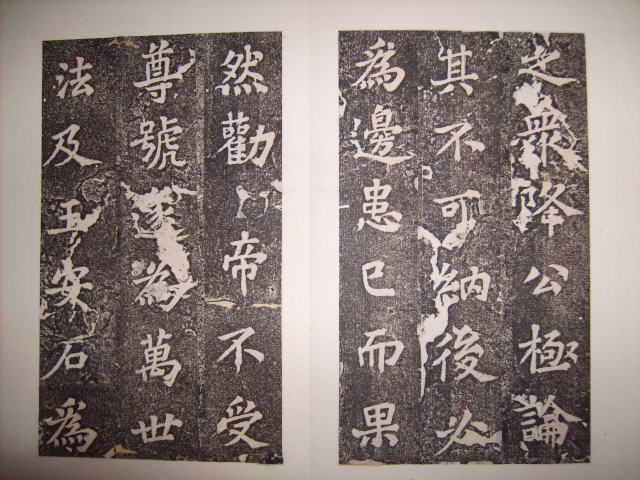 之衆降公極論
其不可納後必
為邊患已而果
然勸帝不受
尊號遂為萬世
法及王安石為